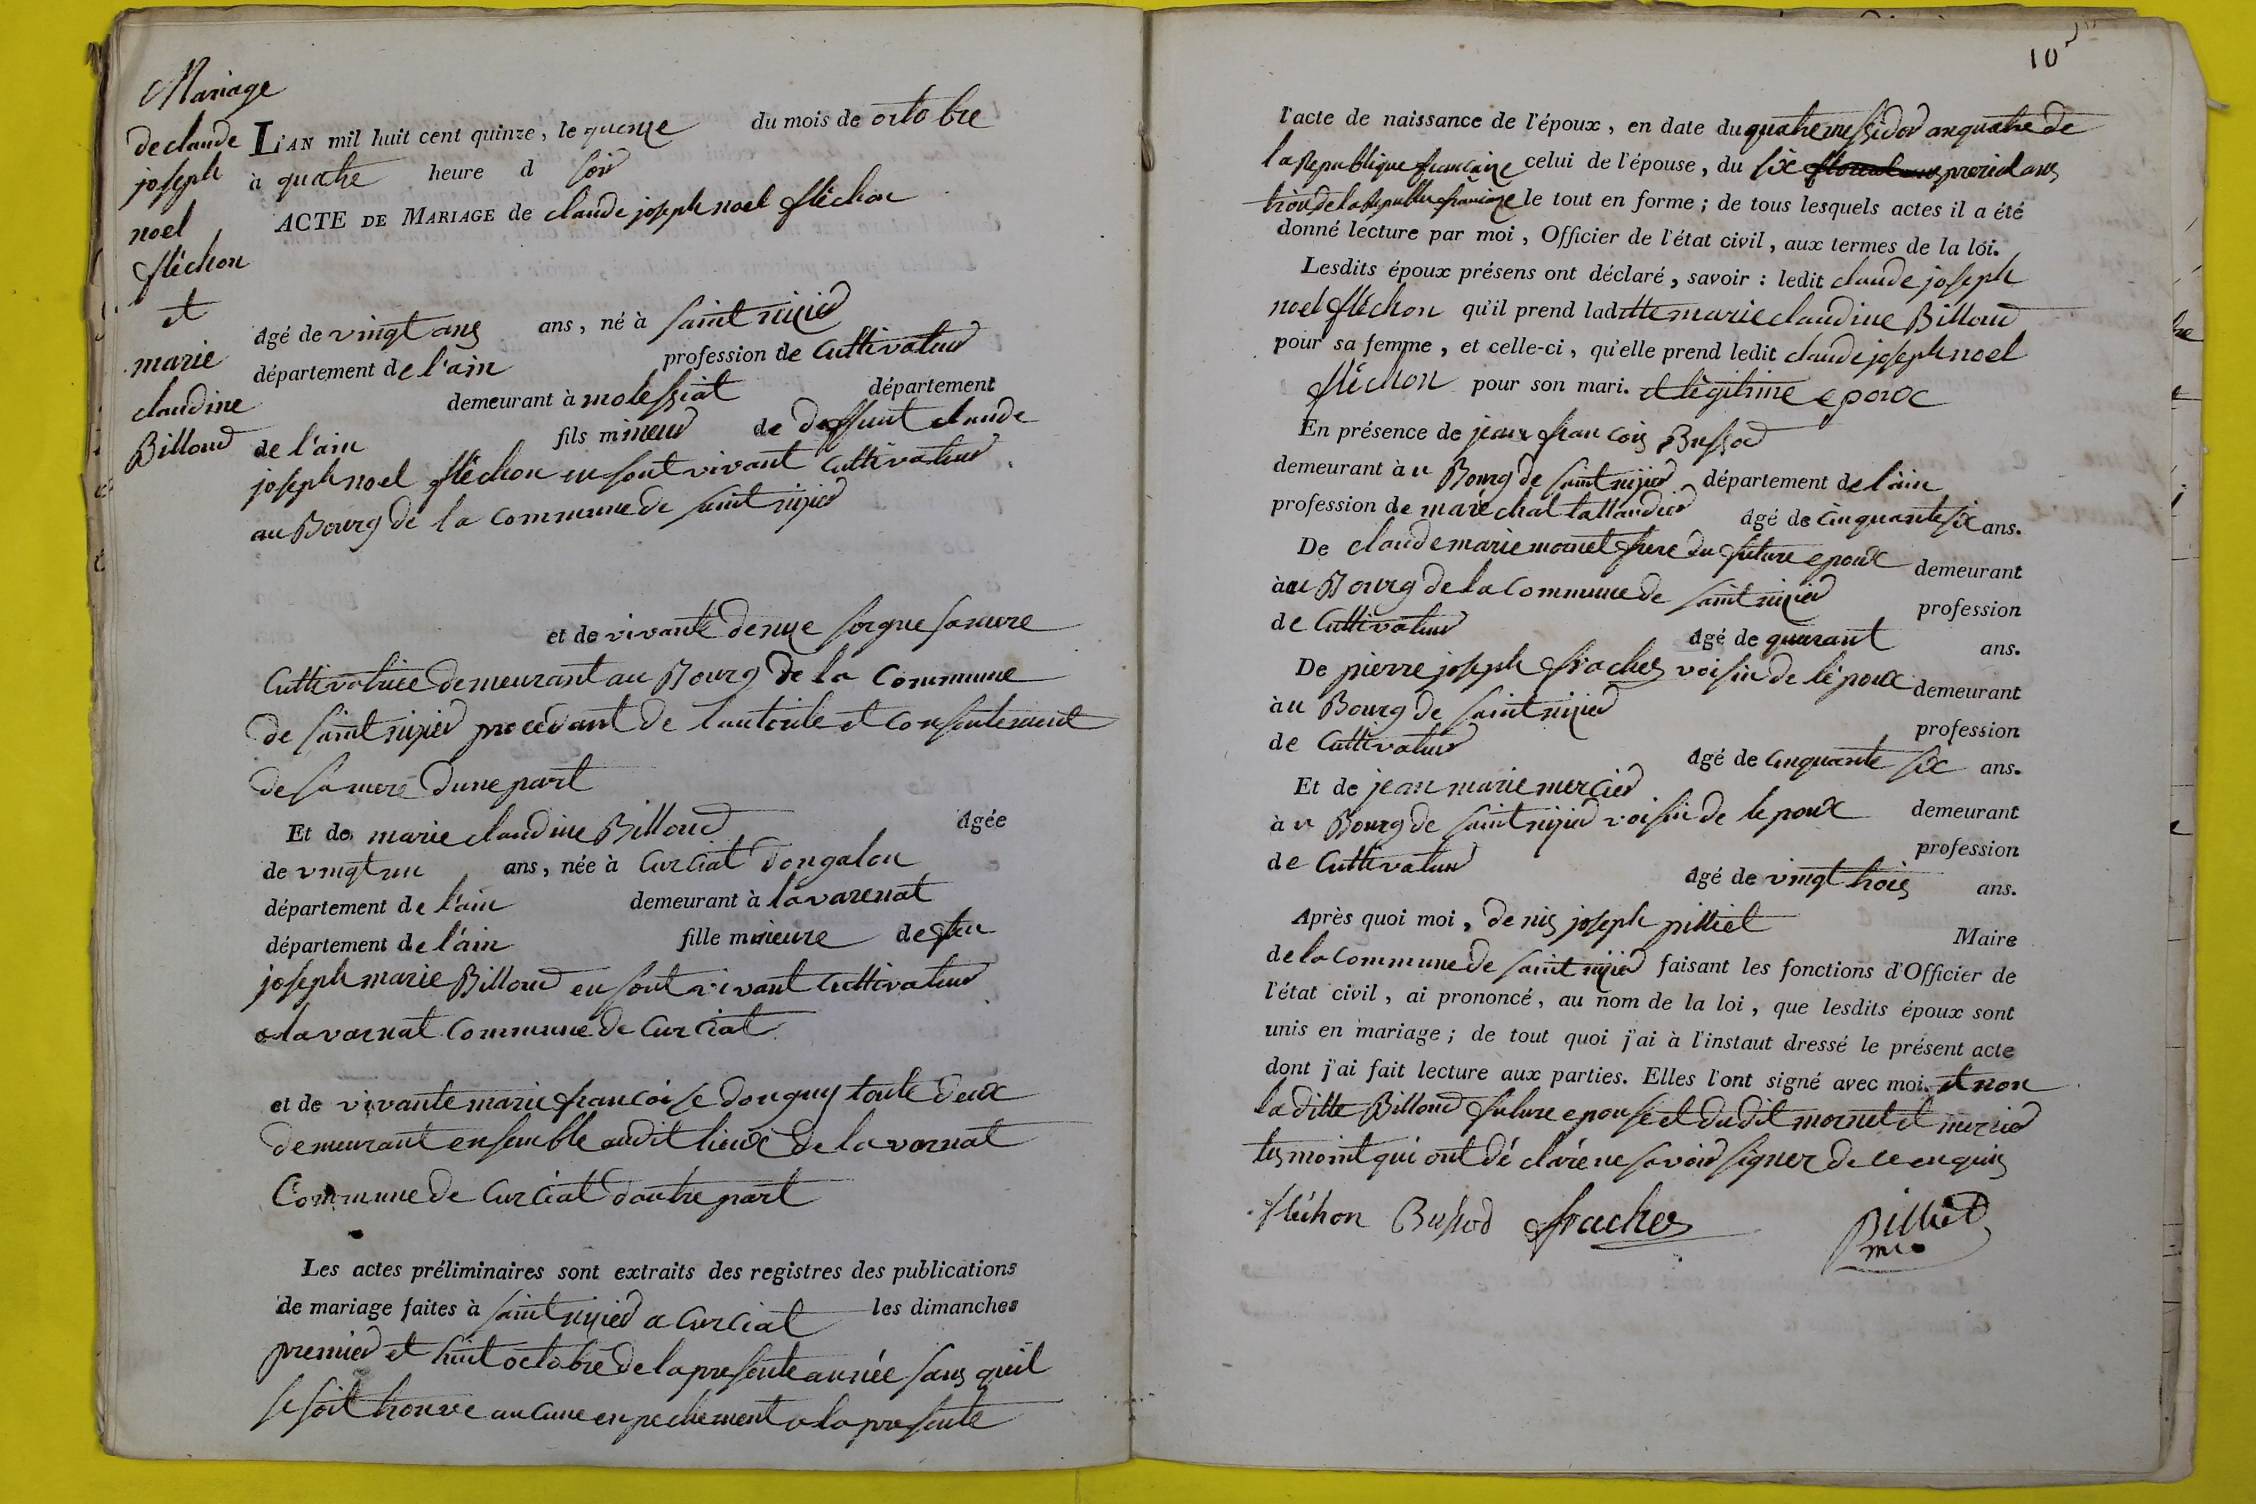 Mariage
de claude
joseph
noel
fléchon
et
marie
claudine
Billoud
L'AN mil huit cent quinze, le quinze du mois de octobre
à quatre heure d soir
ACTE DE MARIAGE de claude joseph noel fléchon
âgé de vingt ans ans, né à saint nizier
département de l'ain profession de Cultivateur
demeurant à molessiat département
de l'ain fils mineur de deffunt claude
joseph noel fléchon en sont vivant Cultivateur
au Bourg de la Commune de saint nizier
et de vivante denize sorgue sa mere
Cultivatrice demeurant au Bourg de la Commune
de saint nizier procedant de lautorité et consentement
de sa mere dune part
Et de marie claudine Billoud âgée
de vingt un ans, née à Curciat dongalon
département de l'ain demeurant à la varenat
département de l'ain fille mineure de feu
joseph marie Billoud en sont vivant Cultivateur
a la varnat Commune de Curciat
et de vivante marie francoise donguy toute deux
demeurant ensemble audit lieux de la varnat
Commune de Curciat dautre part
Les actes préliminaires sont extraits des registres des publications
de mariage faites à saint nizier a Curciat les dimanches
premier et huit octobre de la presente année sans quil
se soit trouve aucune enpechement a la presente
10
l'acte de naissance de l'époux, en date du quatre messidor an quatre de
la Republique francaize celui de l'épouse, du six prerial ans
trois de la Republic francaize le tout en forme; de tous lesquels actes il a été
donné lecture par moi, Officier de l'état civil, aux termes de la loi.
Lesdits époux présens ont déclaré, savoir : ledit claude joseph
noel fléchon qu'il prend laditte marie claudine Billoud
pour sa femme, et celle-ci, qu'elle prend ledit claude joseph noel
fléchon pour son mari. et légitime epoux
En présence de jean francois Bussod
demeurant à u Bourg de saint nizier département de l'ain
profession de maréchal tallandier âgé de cinquante six ans.
De claude marie mornet frere du future epoux demeurant
à au Bourg de la Commune de saint nizier profession
de Cultivateur âgé de quarant ans.
De pierre joseph frachez voisin de lépoux demeurant
à u Bourg de saint nizier profession
de Cultivateur âgé de cinquante six ans.
Et de jean marie mercier demeurant
à u Bourg de saint nizier voisin de lepoux profession
de Cultivateur âgé de vingt trois ans.
Après quoi moi, denis joseph pilliet Maire
de la Commune de saint nizier faisant les fonctions d'Officier de
l'état civil, ai prononcé, au nom de la loi, que lesdits époux sont
unis en mariage ; de tout quoi j'ai à l'instaut dressé le présent acte
dont j'ai fait lecture aux parties. Elles l'ont signé avec moi. et non
la ditte Billoud future epouse et dudit mornet et mercier
tesmoint qui ont dé claré ne savoir signer de ce enquis
fléchon Bussod frachez Pilliet